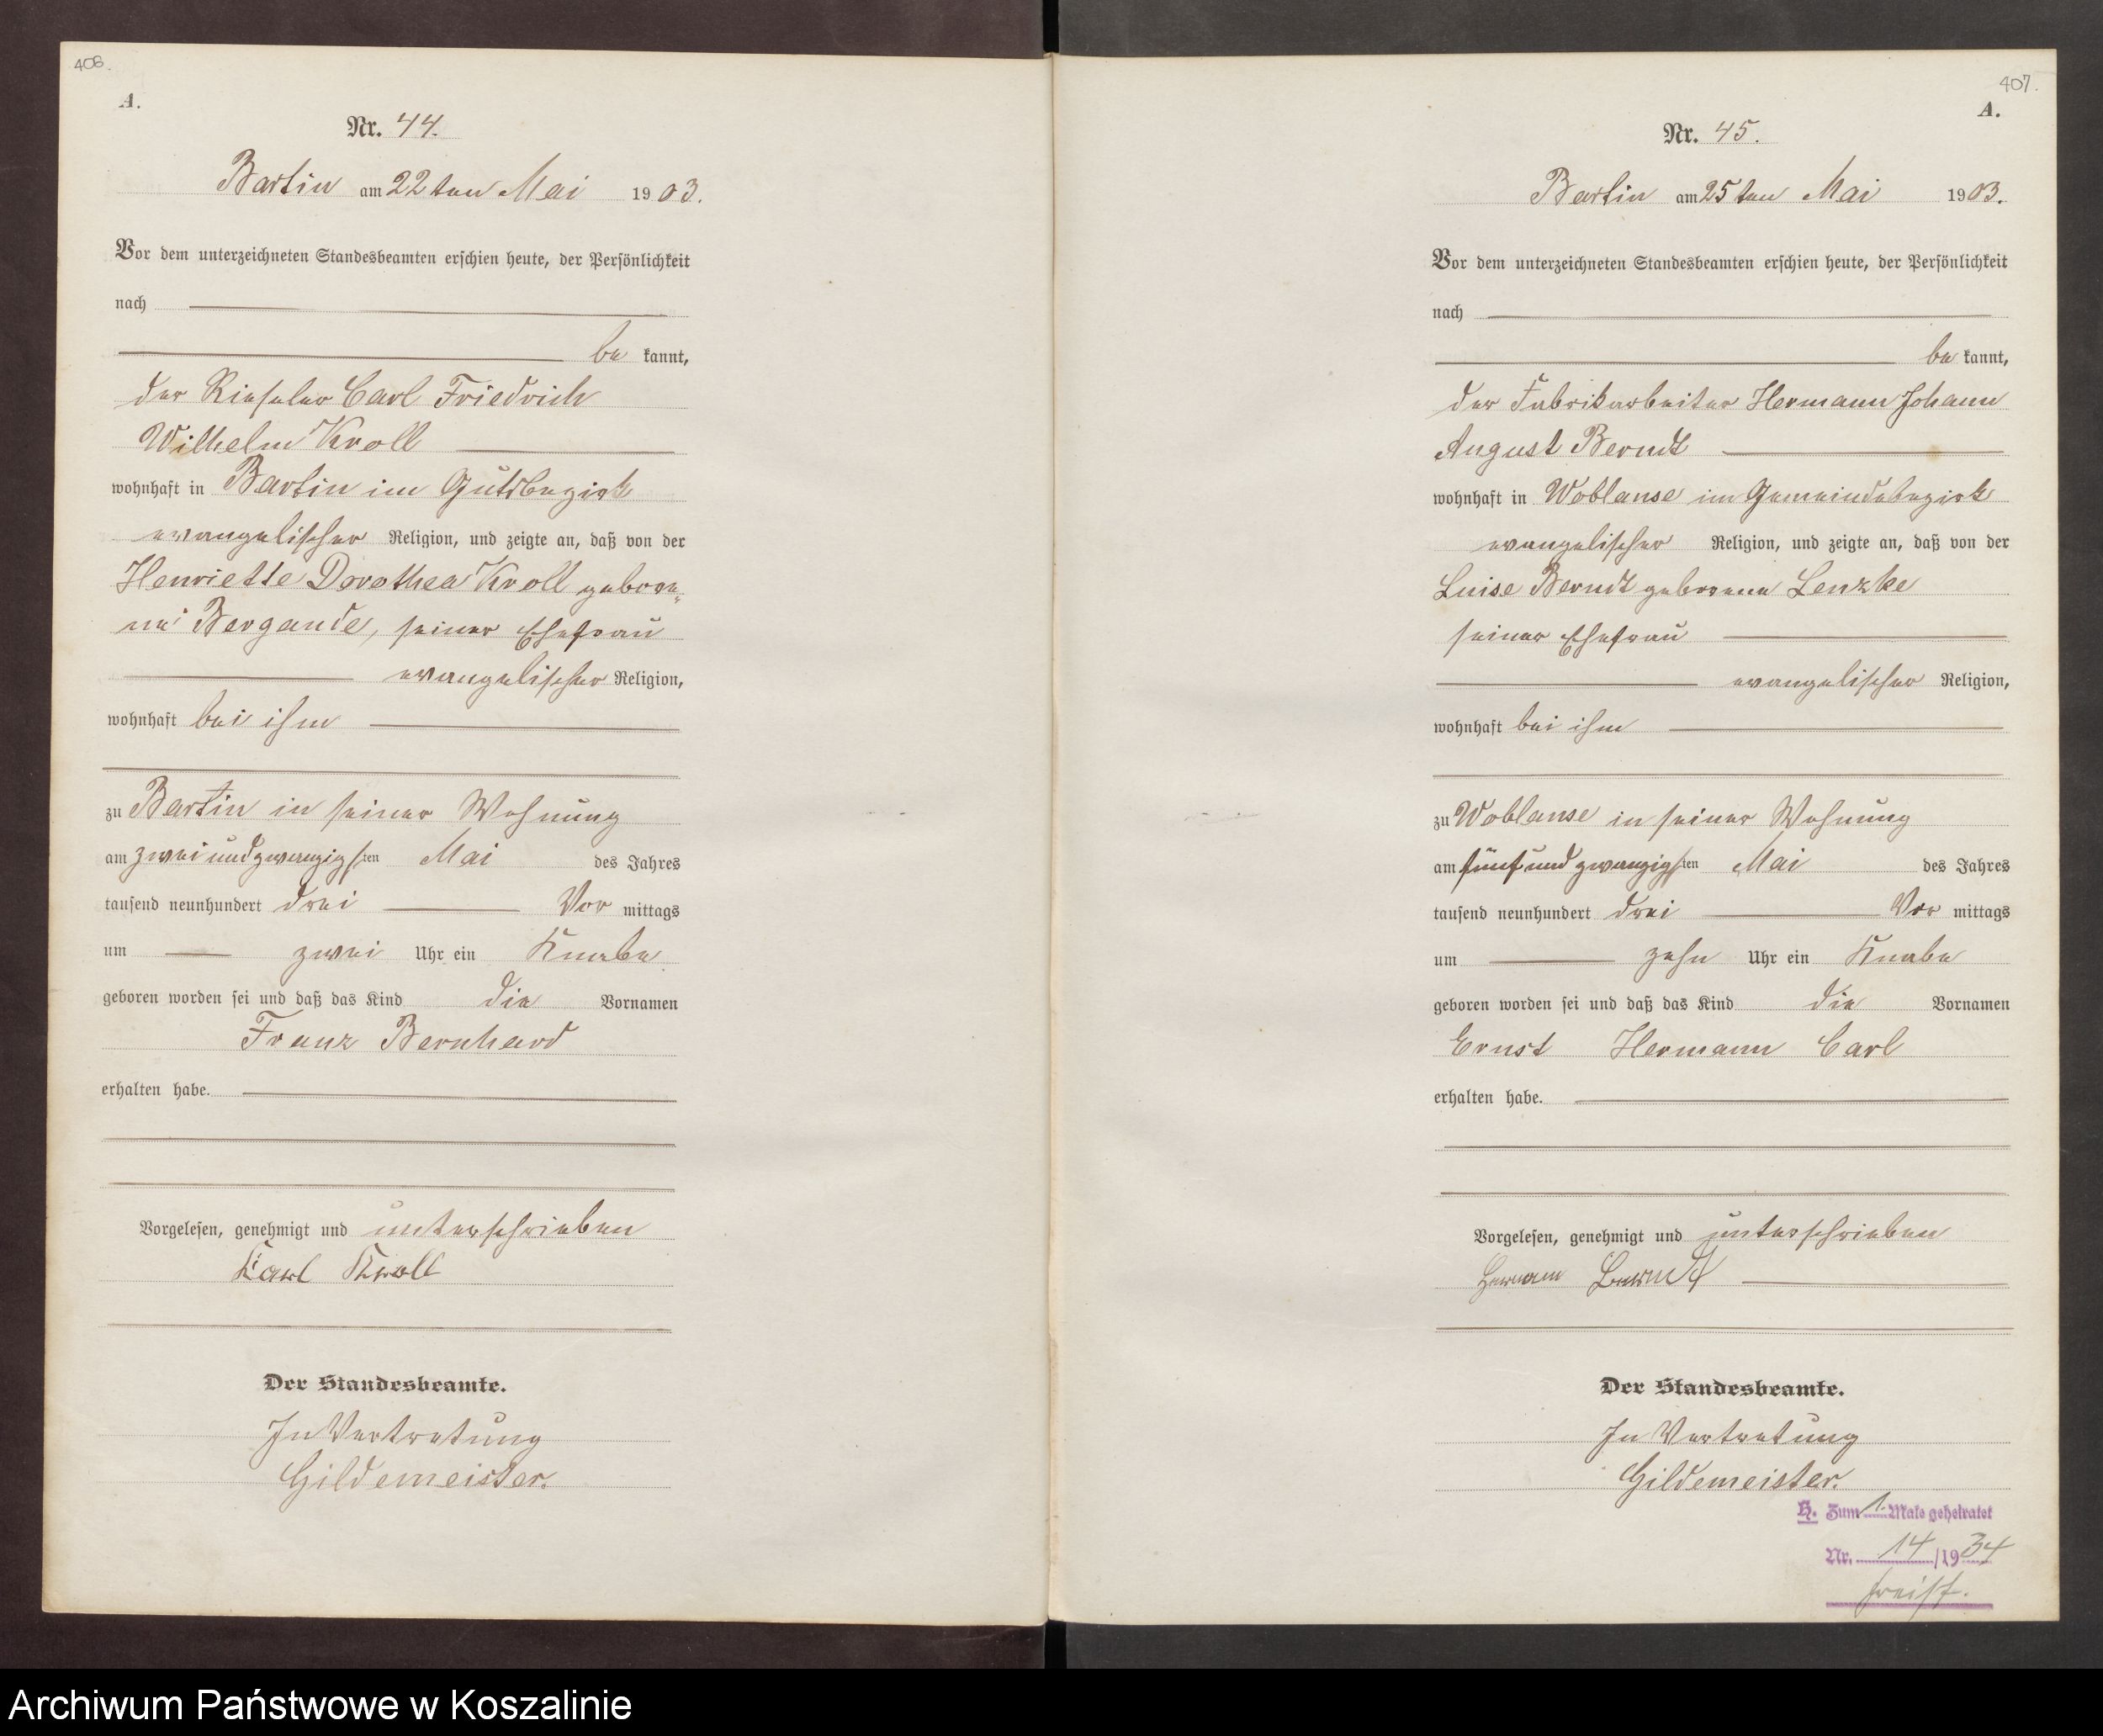 408.
A.
Nr. 44.
Bartin am 22ten Mai 1903.
Vor dem unterzeichneten Standesbeamten erschien heute, der Persönlichkeit
nach
be kannt,
der Rieseler Carl Friedrich
Wilhelm Kroll
wohnhaft in Bartin im Gutsbezirk
evangelischer Religion, und zeigte an, daß von der
Henriette Dorothea Kroll gebore-
ne Bergande, seiner Ehefrau
evangelischer Religion,
wohnhaft bei ihm
zu Bartin in seiner Wohnung
am zwei und zwanzigsten Mai des Jahres
tausend neunhundert drei Vor mittags
um zwei Uhr ein Knabe
geboren worden sei und daß das Kind die Vornamen
Franz Bernhard
erhalten habe.
Vorgelesen, genehmigt und unterschrieben
Karl Kroll
Der Standesbeamte.
In Vertretung
Gildemeister.
407.
A.
Nr. 45.
Bartin am 25ten Mai 1903.
Vor dem unterzeichneten Standesbeamten erschien heute, der Persönlichkeit
nach
be kannt,
der Fabrikarbeiter Hermann Johann
August Berndt
wohnhaft in Woblanse im Gemeindebezirk
evangelischer Religion, und zeigte an, daß von der
Luise Berndt geborene Lenzke
seiner Ehefrau
evangelischer Religion,
wohnhaft bei ihm
zu Woblanse in seiner Wohnung
am fünf und zwanzigsten Mai des Jahres
tausend neunhundert drei Vor mittags
um zehn Uhr ein Knabe
geboren worden sei und daß das Kind die Vornamen
Ernst Hermann Carl
erhalten habe.
Vorgelesen, genehmigt und unterschrieben
Hermann Berndt
Der Standesbeamte.
In Vertretung
Gildemeister.
H. Zum 1. Male geheiratet
Nr. 14/1934
Archiwum Państwowe w Koszalinie